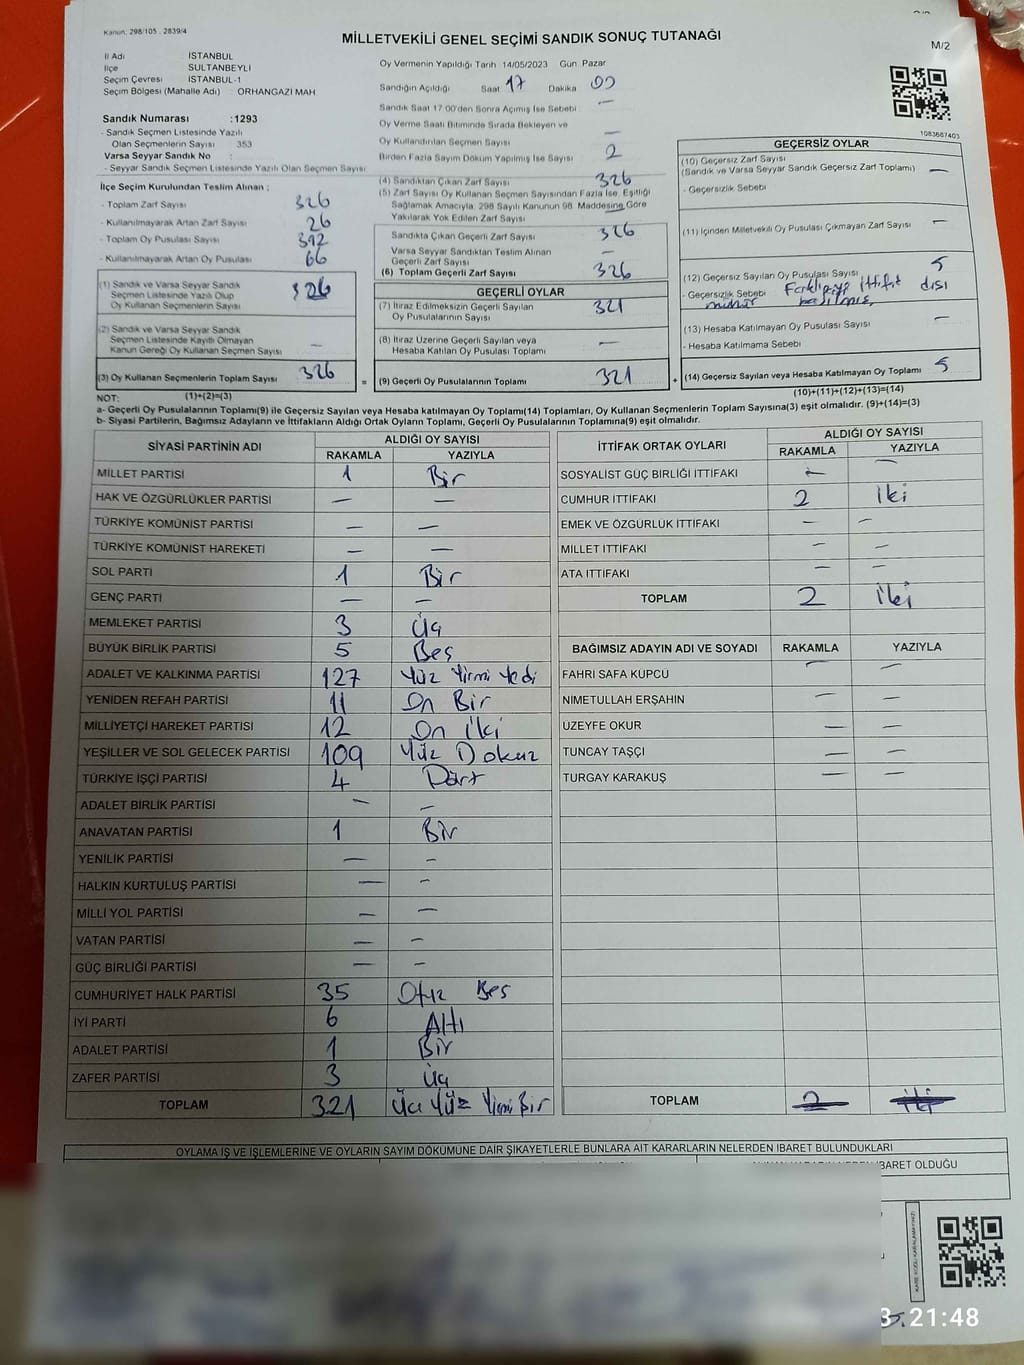 Kanun: 298/105 - 2839/4
MİLLETVEKİLİ GENEL SEÇİMİ SANDIK SONUÇ TUTANAĞI
M/2
İl Adı İSTANBUL
İlçe SULTANBEYLİ
Seçim Çevresi İSTANBUL-1
Seçim Bölgesi (Mahalle Adı) : ORHANGAZİ MAH.
Sandık Numarası :1293
- Sandık Seçmen Listesinde Yazılı
Olan Seçmenlerin Sayısı 353
Varsa Seyyar Sandık No :
- Seyyar Sandık Seçmen Listesinde Yazılı Olan Seçmen Sayısı
Oy Vermenin Yapıldığı Tarih 14/05/2023 Gün Pazar
Sandığın Açıldığı Saat 17 Dakika 00
Sandık Saat 17:00'den Sonra Açılmış İse Sebebi : —
Oy Verme Saati Bitiminde Sırada Bekleyen ve
Oy Kullandırılan Seçmen Sayısı —
Birden Fazla Sayım Döküm Yapılmış İse Sayısı 2
1083667403
İlçe Seçim Kurulundan Teslim Alınan ;
- Toplam Zarf Sayısı 326
- Kullanılmayarak Artan Zarf Sayısı 26
- Toplam Oy Pusulası Sayısı 392
- Kullanılmayarak Artan Oy Pusulası 66
(1) Sandık ve Varsa Seyyar Sandık
Seçmen Listesinde Yazılı Olup
Oy Kullanan Seçmenlerin Sayısı 326
(2) Sandık ve Varsa Seyyar Sandık
Seçmen Listesinde Kayıtlı Olmayan
Kanun Gereği Oy Kullanan Seçmen Sayısı —
(3) Oy Kullanan Seçmenlerin Toplam Sayısı 326 =
(4) Sandıktan Çıkan Zarf Sayısı 326
(5) Zarf Sayısı Oy Kullanan Seçmen Sayısından Fazla İse, Eşitliği
Sağlamak Amacıyla, 298 Sayılı Kanunun 98. Maddesine Göre
Yakılarak Yok Edilen Zarf Sayısı
Sandıkta Çıkan Geçerli Zarf Sayısı 326
Varsa Seyyar Sandıktan Teslim Alınan
Geçerli Zarf Sayısı —
(6) Toplam Geçerli Zarf Sayısı 326
GEÇERLİ OYLAR
(7) İtiraz Edilmeksizin Geçerli Sayılan
Oy Pusulalarının Sayısı 321
(8) İtiraz Üzerine Geçerli Sayılan veya
Hesaba Katılan Oy Pusulası Toplamı —
(9) Geçerli Oy Pusulalarının Toplamı 321 +
GEÇERSİZ OYLAR
(10) Geçersiz Zarf Sayısı
(Sandık ve Varsa Seyyar Sandık Geçersiz Zarf Toplamı) —
- Geçersizlik Sebebi
(11) İçinden Milletvekili Oy Pusulası Çıkmayan Zarf Sayısı —
(12) Geçersiz Sayılan Oy Pusulası Sayısı 5
- Geçersizlik Sebebi ittifak dışı
mühür basılmış,
(13) Hesaba Katılmayan Oy Pusulası Sayısı —
- Hesaba Katılmama Sebebi
(14) Geçersiz Sayılan veya Hesaba Katılmayan Oy Toplamı 5
NOT: (1)+(2)=(3) (10)+(11)+(12)+(13)=(14)
a- Geçerli Oy Pusulalarının Toplamı(9) ile Geçersiz Sayılan veya Hesaba katılmayan Oy Toplamı(14) Toplamları, Oy Kullanan Seçmenlerin Toplam Sayısına(3) eşit olmalıdır. (9)+(14)=(3)
b- Siyasi Partilerin, Bağımsız Adayların ve İttifakların Aldığı Ortak Oyların Toplamı, Geçerli Oy Pusulalarının Toplamına(9) eşit olmalıdır.
SİYASİ PARTİNİN ADI ALDIĞI OY SAYISI
RAKAMLA YAZIYLA
MİLLET PARTİSİ 1 Bir
HAK VE ÖZGÜRLÜKLER PARTİSİ — —
TÜRKİYE KOMÜNİST PARTİSİ — —
TÜRKİYE KOMÜNİST HAREKETİ — —
SOL PARTİ 1 Bir
GENÇ PARTİ — —
MEMLEKET PARTİSİ 3 Üç
BÜYÜK BİRLİK PARTİSİ 5 Beş
ADALET VE KALKINMA PARTİSİ 127 Yüz Yirmi Yedi
YENİDEN REFAH PARTİSİ 11 On Bir
MİLLİYETÇİ HAREKET PARTİSİ 12 On İki
YEŞİLLER VE SOL GELECEK PARTİSİ 109 Yüz Dokuz
TÜRKİYE İŞÇİ PARTİSİ 4 Dört
ADALET BİRLİK PARTİSİ — —
ANAVATAN PARTİSİ 1 Bir
YENİLİK PARTİSİ — —
HALKIN KURTULUŞ PARTİSİ — —
MİLLİ YOL PARTİSİ — —
VATAN PARTİSİ — —
GÜÇ BİRLİĞİ PARTİSİ — —
CUMHURİYET HALK PARTİSİ 35 Otuz Beş
İYİ PARTİ 6 Altı
ADALET PARTİSİ 1 Bir
ZAFER PARTİSİ 3 Üç
TOPLAM 321 Üç Yüz Yirmi Bir
İTTİFAK ORTAK OYLARI ALDIĞI OY SAYISI
RAKAMLA YAZIYLA
SOSYALİST GÜÇ BİRLİĞİ İTTİFAKI — —
CUMHUR İTTİFAKI 2 İki
EMEK VE ÖZGÜRLÜK İTTİFAKI — —
MİLLET İTTİFAKI — —
ATA İTTİFAKI — —
TOPLAM 2 İki
BAĞIMSIZ ADAYIN ADI VE SOYADI RAKAMLA YAZIYLA
FAHRİ SAFA KÜPCÜ — —
NİMETULLAH ERŞAHİN — —
ÜZEYFE OKUR — —
TUNCAY TAŞÇI — —
TURGAY KARAKUŞ — —
TOPLAM 2 İki
OYLAMA İŞ VE İŞLEMLERİNE VE OYLARIN SAYIM DÖKÜMÜNE DAİR ŞİKAYETLERLE BUNLARA AİT KARARLARIN NELERDEN İBARET BULUNDUKLARI
İBARET OLDUĞU
KARE KODU KARALAMAYINIZ!
21:48